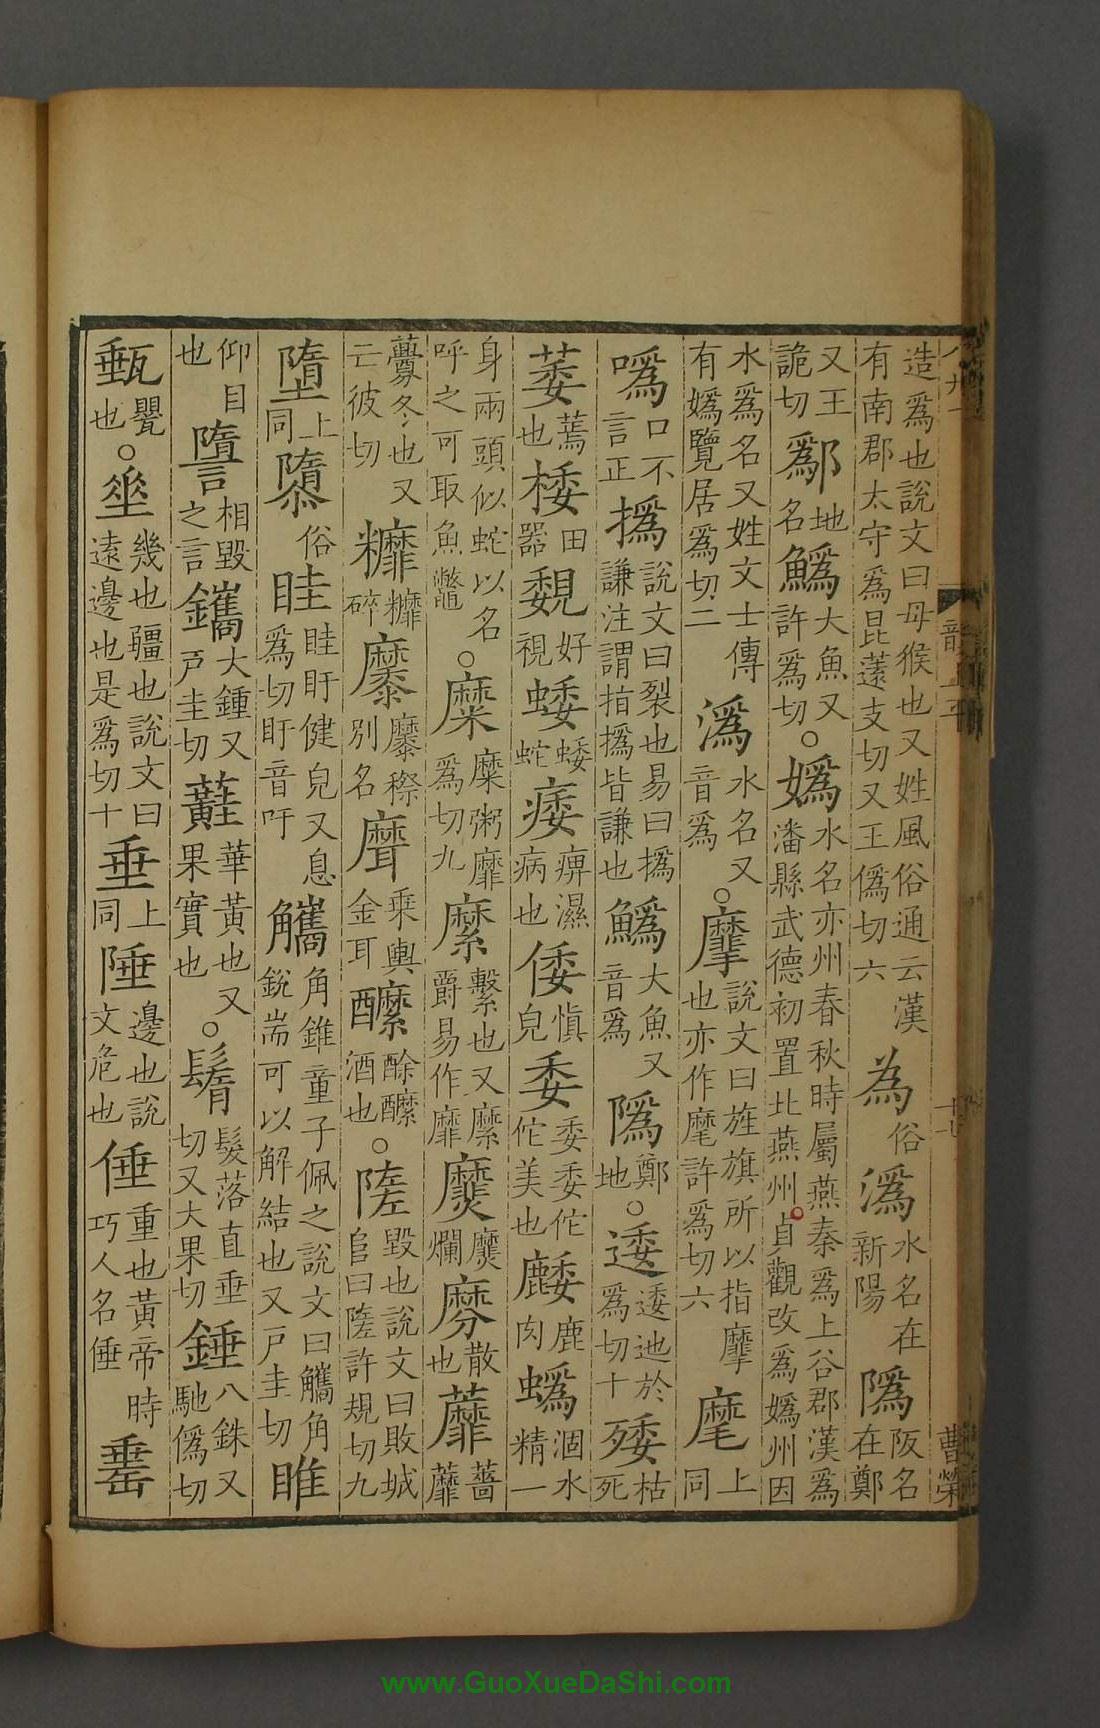 造爲也說文曰母猴也又姓風俗通云漢有南郡太守爲昆薳支切又王僞切六 為俗 溈水名在新陽 隖阪名在鄭
又王詭切 鄬地名 鰞大魚又許爲切 ○嬀水名亦州春秋時屬燕秦爲上谷郡漢爲潘縣武德初置北燕州貞觀改爲嬀州因
水爲名又姓文士傳有嬀覽居爲切二 潙水名又音爲 ○摩說文曰旌旗所以指摩也亦作麾許爲切六 麾上同
噅口不言正 撝說文曰裂也易曰撝謙注謂指撝皆謙也 鰞大魚又音爲 隖鄭地 ○逶逶迆於爲切十 矮枯死
萎蔫也 楼田器 覣好視 蜲蜲蛇 痿痹濕病也 倭愼皃 委委委佗佗美也 䴧鹿肉 蟡涸水精一
身兩頭似蛇以名呼之可取魚鼈 ○糜糜粥靡爲切九 縻繫也又縻爵易作靡 爢爢爛 䊳散也 蘼薔蘼
虋冬也又亡彼切 䊳䊳碎 䵢䵢穄別名 䃺乘輿金耳 醾酴醾酒也 ○隓毀也說文曰敗城𨸏曰隓許規切九
墮上同 隳俗 眭眭盱健皃又息爲切盱音吁 觿角錐童子佩之說文曰觿角銳耑可以解結也又戸圭切 睢
仰目也 䜐相毀之言 鑴大鍾又戸圭切 蘳華黃也又果實也 ○鬌髮落直垂切又大果切 錘八銖又馳僞切
甀甖也 ○𡍮幾也疆也說文曰遠邊也是爲切十 垂上同 陲邊也說文危也 倕重也黃帝時巧人名倕 𦈢
曹榮
www.GuoXueDaShi.com